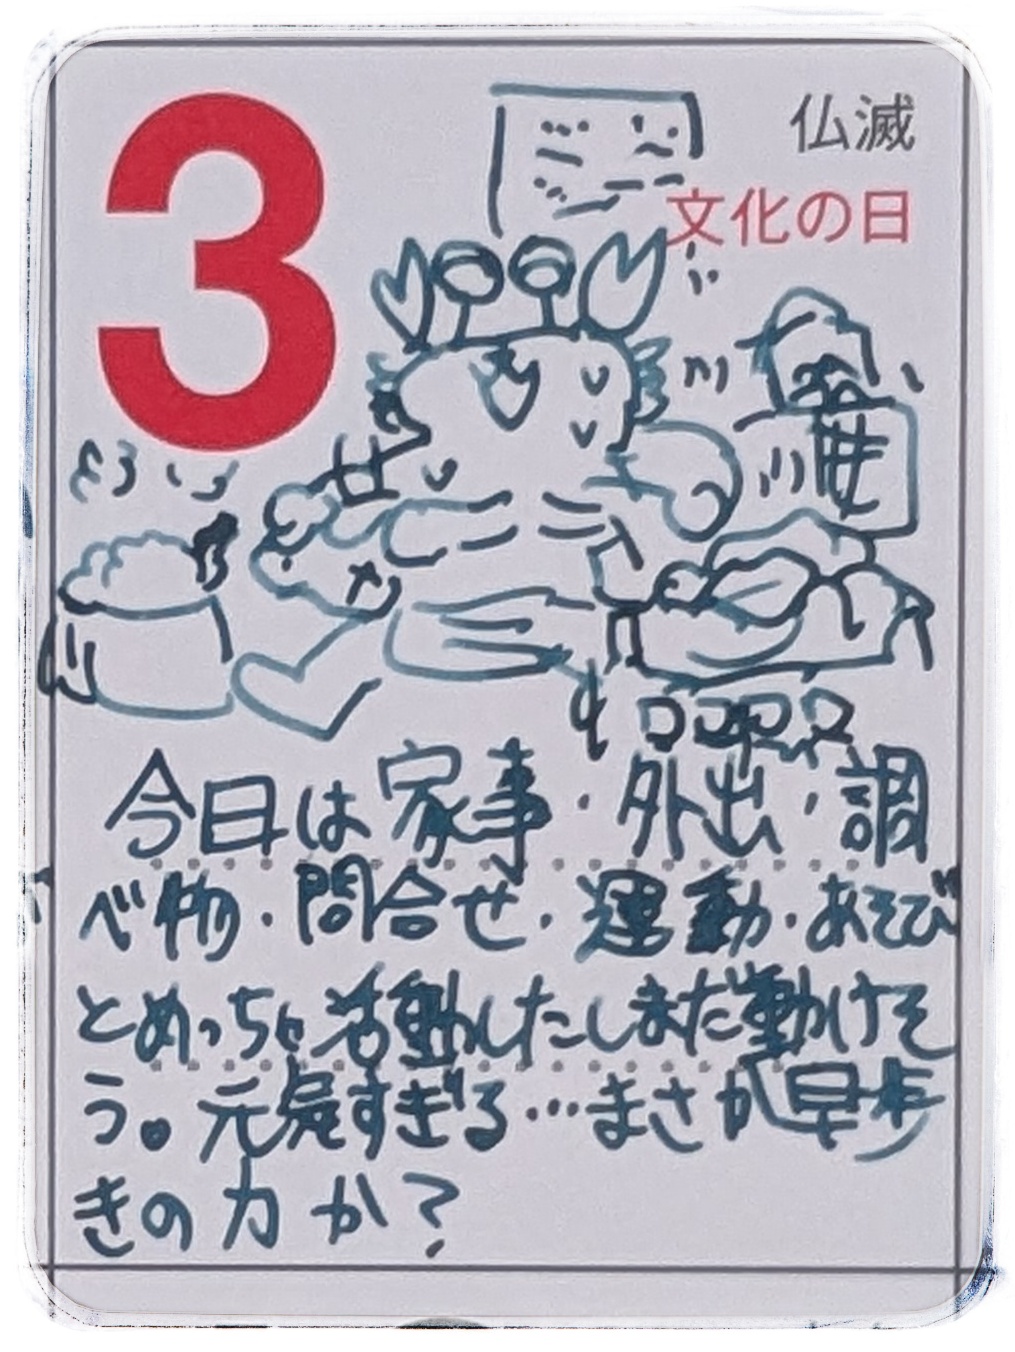 3
仏滅
文化の日
今日は家事・外出・調
べ物・問合せ・運動・あそび
とめっちゃ活動したしまだ動けそ
う。元気すぎる…まさか早歩
きの力か?